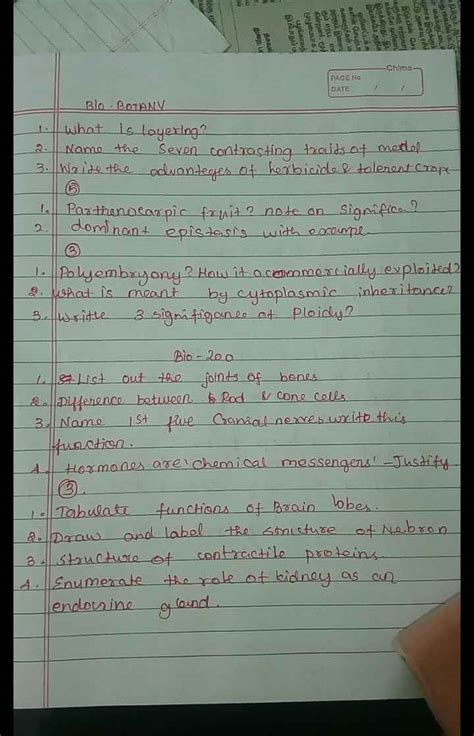 Chima
PAGE No
DATE / /
Bio - BOTANY
1. What is layering?
2. Name the Seven contracting traits of medol
3. Write the advanteges of herbicide & talerent crape
⑤
1. Parthenocarpic fruit? note on Significa?
2 dominant epistasis with example.
③
1. Polyembryony? How it a commercially exploited?
2. What is meant by cytoplasmic inheritance?
3. Writte 3 signifigance of Ploidy?
Bio - zoo
1. List out the joints of bones
2. Difference between Rod & cone cells
3. Name 1st five Cranial nerves write this
function.
4. Hormones are 'chemical messengers' - Justify
③.
1. Tabulate functions of Brain lobes.
2. Draw and label the structure of Nebron
3. Structure of contractile proteins.
4. Enumerate the role of kidney as an
endocrine gland.